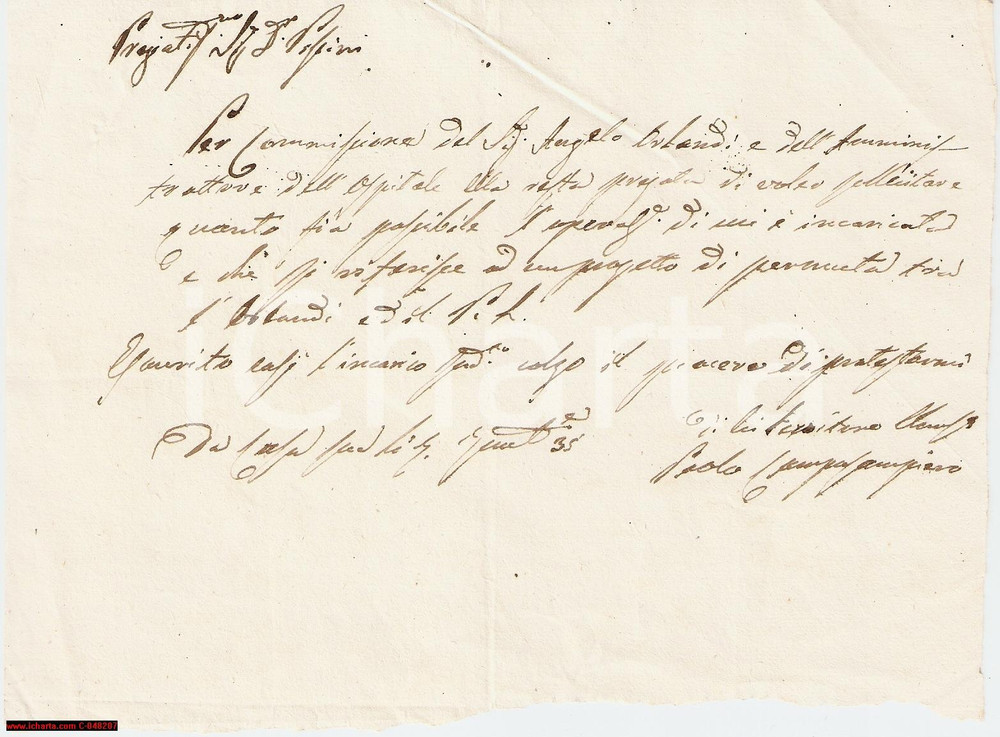 Pregiat.mo Sig. D.r Pessini
Per Commissione del Sig. Angelo Orlandi e dell'Amminis-
trattore dell'Ospitale Ella resta pregata di voler sollecitare
quanto sia possibile l'operaz. di cui è incaricata
e che si riferisce ad un progetto di permuta tra
l'Orlandi ed il P. L.
Esaurito così l'incarico colgo il piacere di protestarmi
Di lei
Da Casa sua li 35
Paolo Camposampiero
iCharta
www.icharta.com C-048207